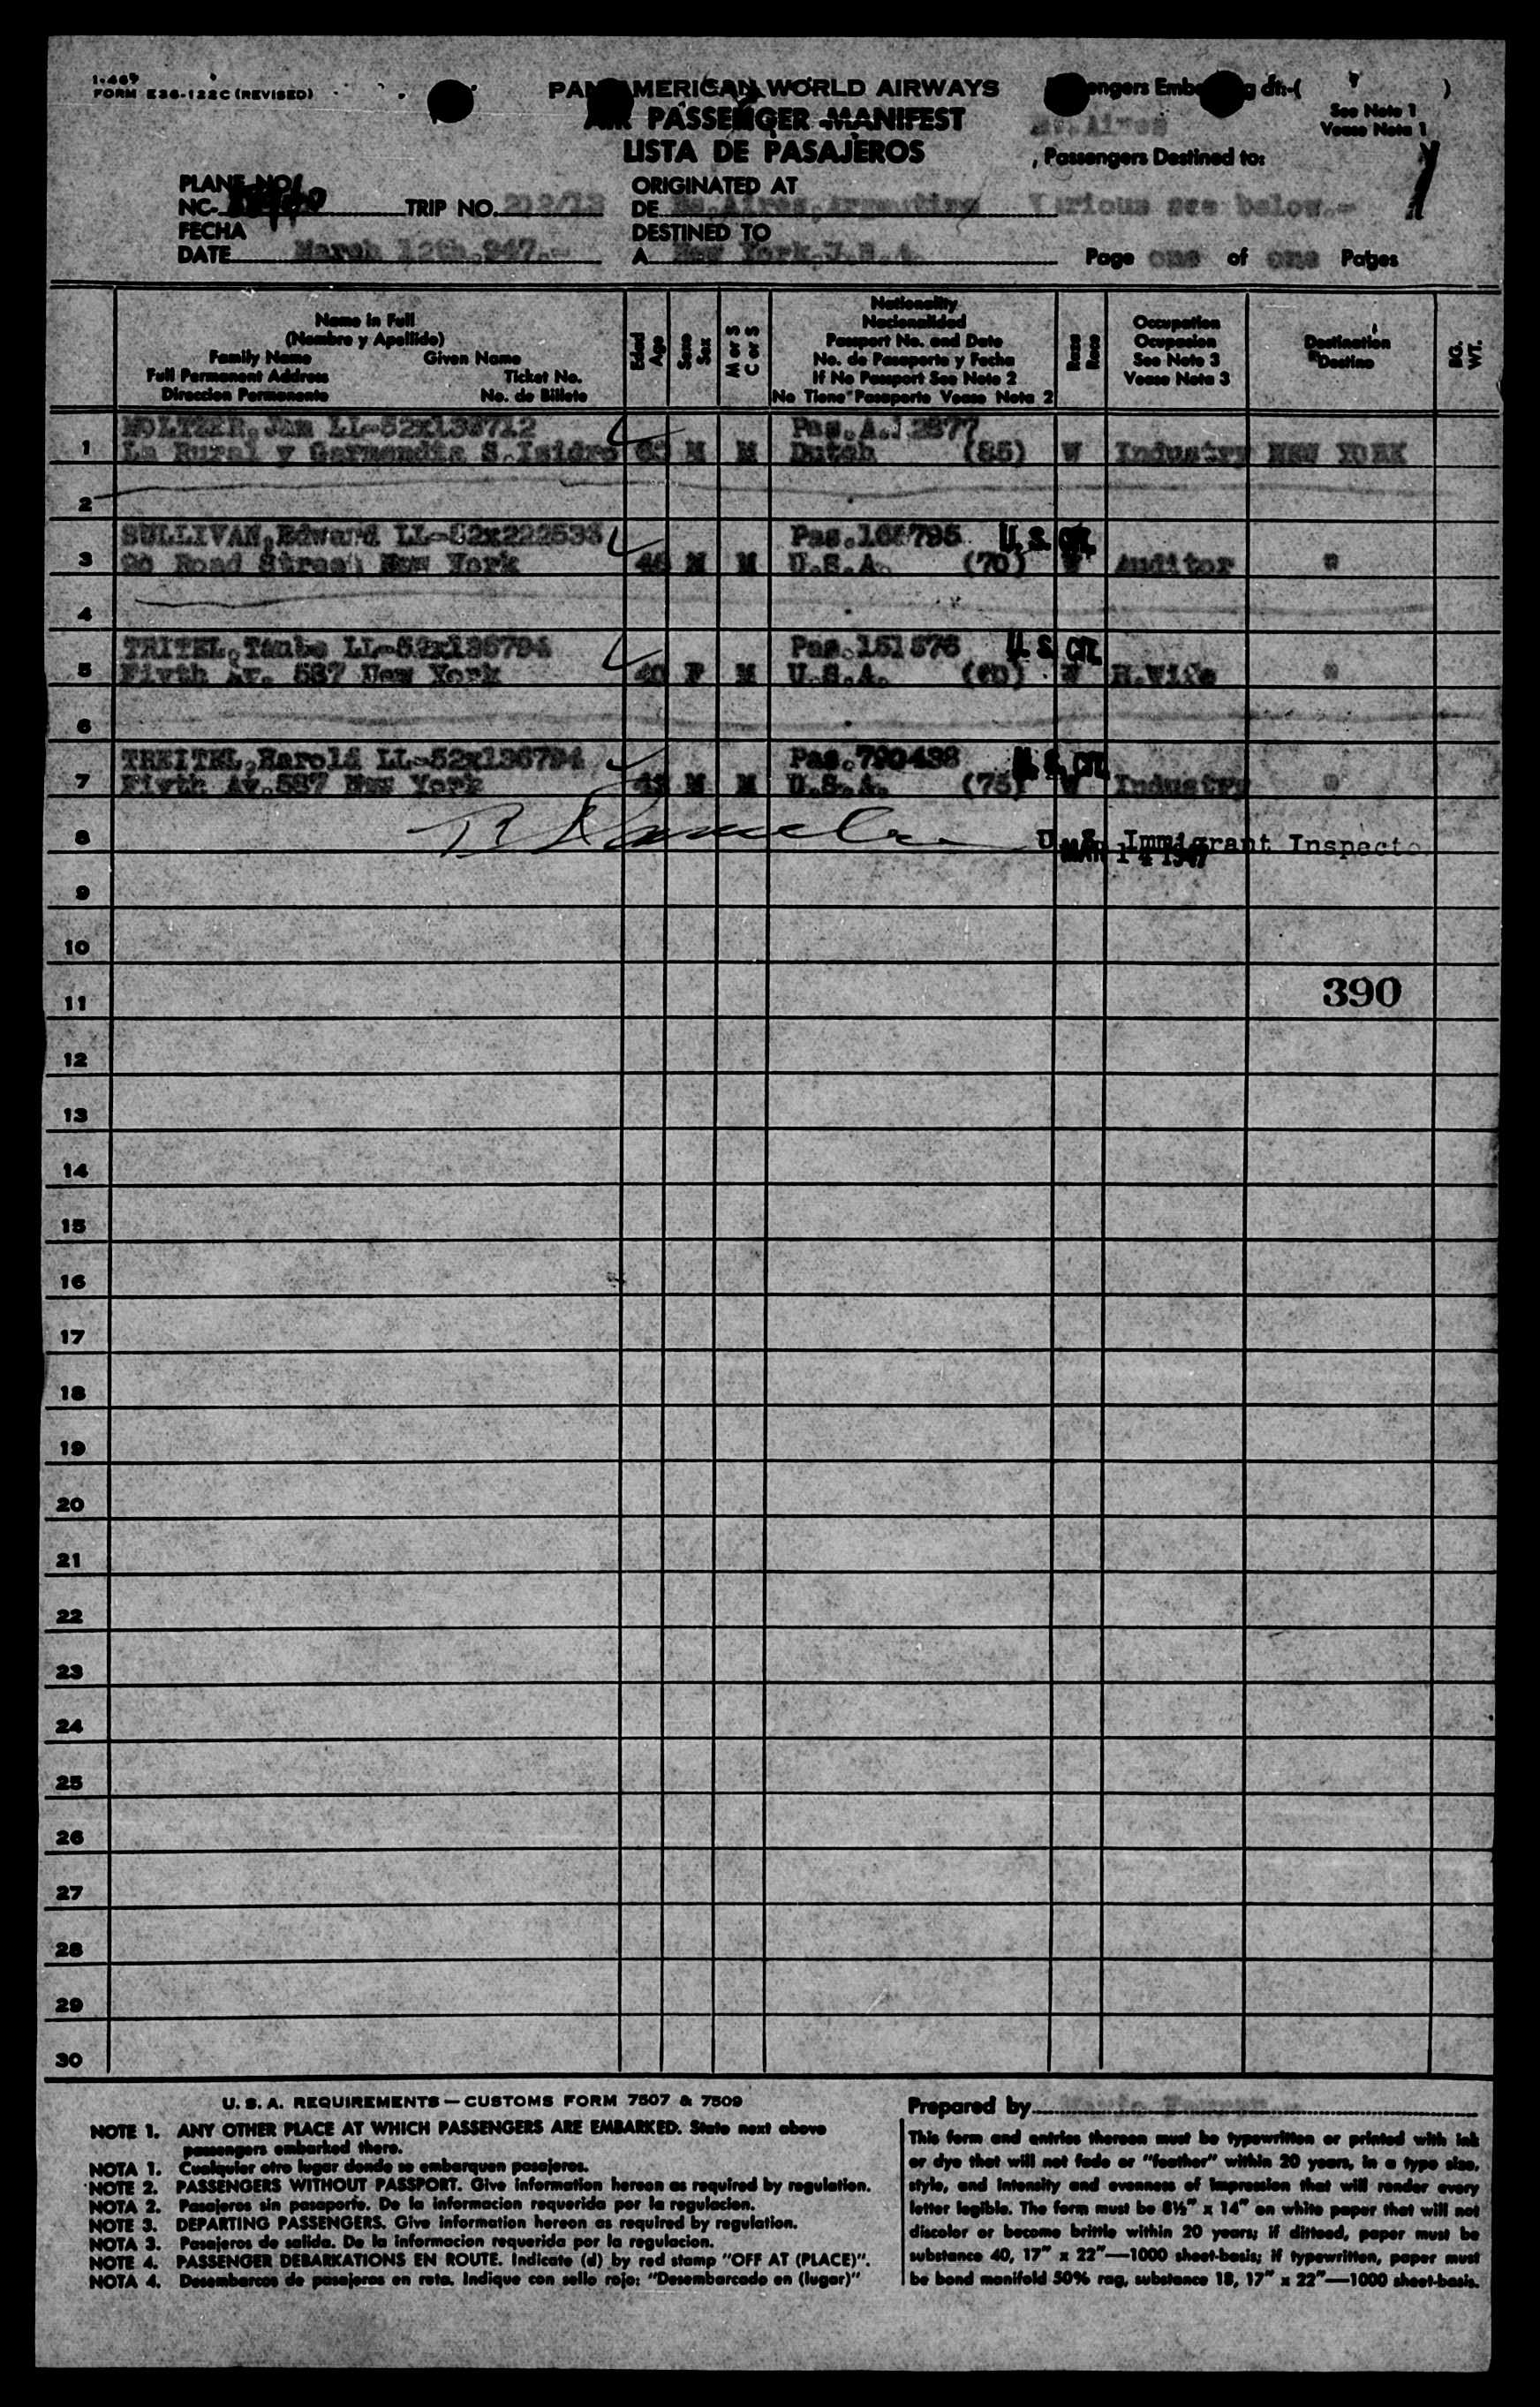 I-469
FORM E36-122C (REVISED)
PAN AMERICAN WORLD AIRWAYS
AIR PASSENGER MANIFEST
LISTA DE PASAJEROS
See Note 1
Vease Nota 1
Bs.Aires
, Passengers Destined to:
Various see below.-
PLANE NO.
NC- TRIP NO. 212/13
FECHA
DATE March 12th.947.-
ORIGINATED AT
DE Bs.Aires,Argentina
DESTINED TO
A New York,U.S.A.
Page one of one Pages
Name in Full
(Nombre y Apellido)
Family Name Given Name
Full Permanent Address Ticket No.
Direccion Permanente No. de Billete
Edad
Age
Sexo
Sex
M or S
C or S
Nationality
Nacionalidad
Passport No. and Date
No. de Pasaporte y Fecha
If No Passport See Note 2
No Tiene Pasaporte Vease Nota 2
Raza
Race
Occupation
Ocupasion
See Note 3
Vease Nota 3
Destination
Destino
BG.
WT.
MOLTZER,Jan LL-52x136712 Pas.A.J 2877
1 La Rural y Garmendia S.Isidro M M Dutch (85) W Industry NEW YORK
2
SULLIVAN,Edward LL-52x222533 U.S. CIT.
3 Street New York 46 M M U.S.A. (70) W Auditor "
4
LL-52x136794 U.S. CIT.
5 Fivth Av. 587 New York 40 F M U.S.A. W H.Wife "
6
TREITEL,Harold LL-52x136794 Pas.790438 U.S. CIT.
7 Fivth Av.587 New York M M U.S.A. (75) W Industry "
8 U. S. Immigrant Inspecto
MAR 14 1947
9
10
11 390
12
13
14
15
16
17
18
19
20
21
22
23
24
25
26
27
28
29
30
U. S. A. REQUIREMENTS — CUSTOMS FORM 7507 & 7509
NOTE 1. ANY OTHER PLACE AT WHICH PASSENGERS ARE EMBARKED. State next above
passengers embarked there.
NOTA 1. Cualquier otro lugar donde se embarquen pasajeros.
NOTE 2. PASSENGERS WITHOUT PASSPORT. Give information hereon as required by regulation.
NOTA 2. Pasajeros sin pasaporte. De la informacion requerida por la regulacion.
NOTE 3. DEPARTING PASSENGERS. Give information hereon as required by regulation.
NOTA 3. Pasajeros de salida. De la informacion requerida por la regulacion.
NOTE 4. PASSENGER DEBARKATIONS EN ROUTE. Indicate (d) by red stamp "OFF AT (PLACE)".
NOTA 4. Desembarcos de pasajeros en ruta. Indique con sello rojo: "Desembarcado en (lugar)"
Prepared by
This form and entries thereon must be typewritten or printed with ink
or dye that will not fade or "feather" within 20 years, in a type size,
style, and intensity and evenness of impression that will render every
letter legible. The form must be 8½" x 14" on white paper that will not
discolor or become brittle within 20 years; if dittoed, paper must be
substance 40, 17" x 22"—1000 sheet-basis; if typewritten, paper must
be bond manifold 50% rag, substance 18, 17" x 22"—1000 sheet-basis.